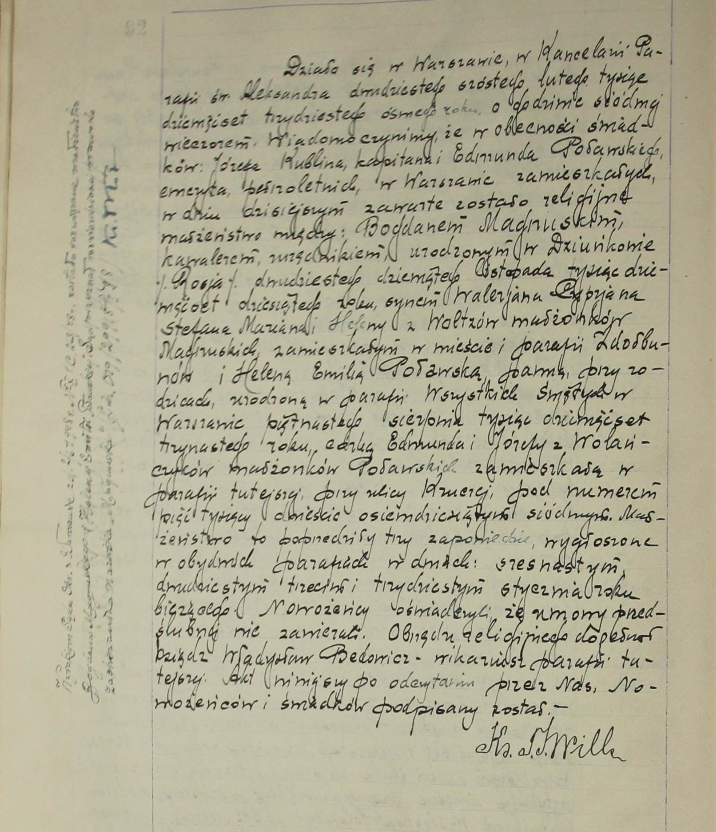 Działo się w Warszawie, w Kancelarii Pa-
rafii św. Aleksandra dwudziestego szóstego lutego tysiąc
dziewięćset trzydziestego ósmego roku, o godzinie siódmej
wieczorem. Wiadomo czynimy, że w obecności świad-
ków: Józefa Kublina, kapitana i Edmunda Poławskiego,
emeryta, pełnoletnich, w Warszawie zamieszkałych,
w dniu dzisiejszym zawarte zostało religijne
małżeństwo między: Bogdanem Magnuskim,
kawalerem, urzędnikiem, urodzonym w Dziunkowie
/. Rosja /. dwudziestego dziewiątego listopada tysiąc dzie-
więćset dziesiątego roku, synem Walerjana Cyprjana
Stefana Mariana i Heleny z Woltzów małżonków
Magnuskich, zamieszkałym w mieście i parafii Zdołbu-
nów i Heleną Emilią Poławską, panną, przy ro-
dzicach, urodzoną w parafii Wszystkich Świętych w
Warszawie piętnastego sierpnia tysiąc dziewięćset
trzynastego roku, córką Edmunda i Józefy z Wolań-
czyków małżonków Poławskich zamieszkałą w
parafii tutejszej, przy ulicy Kruczej, pod numerem
pięć tysięcy dwieście osiemdziesiątym siódmym. Mał-
żeństwo to poprzedziły trzy zapowiedzie, wygłoszone
w obydwóch parafiach w dniach: szesnastym,
dwudziestym trzecim i trzydziestym stycznia roku
bieżącego. Nowożeńcy oświadczyli, że umowy przed-
ślubnej nie zawierali. Obrzędu religijnego dopełnił
ksiądz Władysław Bedowicz - wikariusz parafii tu-
tejszej. Akt niniejszy po odczytaniu przez Nas, No-
wożeńców i świadków podpisany został.-
Ks. Will